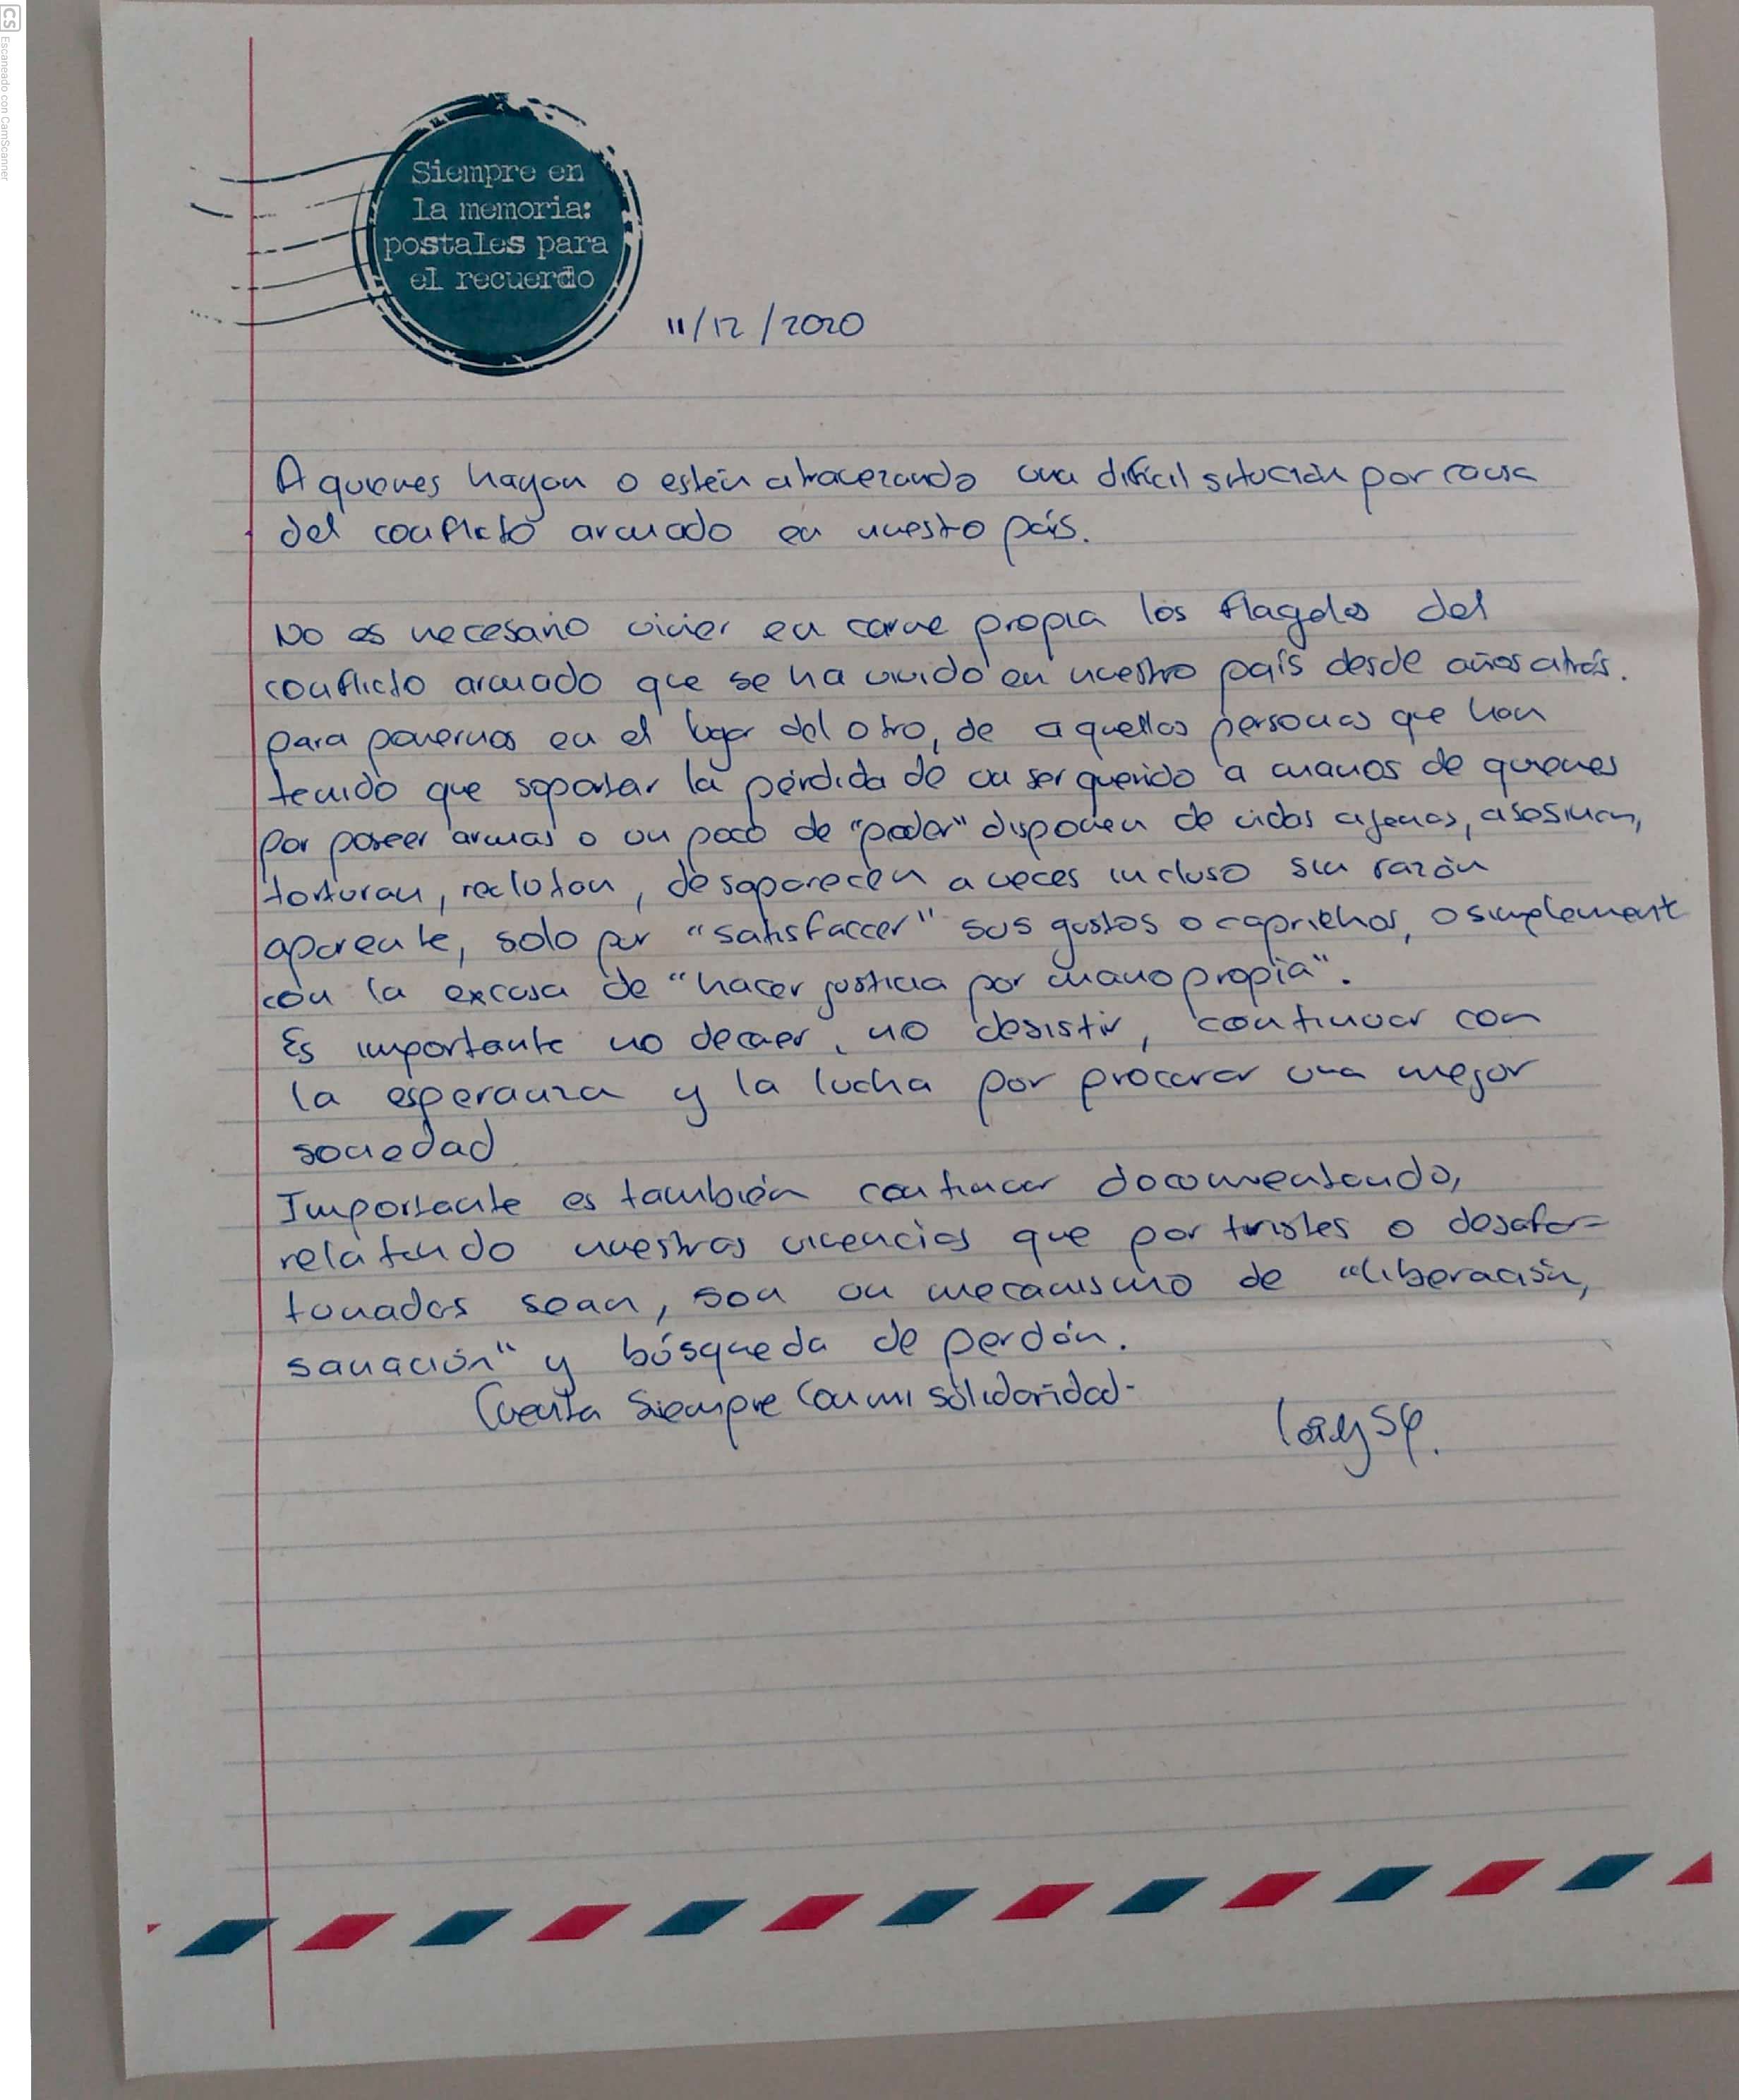 CS Escaneado con CamScanner
Siempre en
la memoria:
postales para
el recuerdo
11/12/2020
A quienes hayan o estén atravezando una difícil situación por causa
del conflicto armado en nuestro país.
No es necesario vivier en carne propia los flagelos del
conflicto armado que se ha vivido en nuestro país desde años atrás.
para ponernos en el lugar del otro, de aquellas personas que han
tenido que soportar la pérdida de un ser querido a manos de quienes
por poseer armas o un poco de "poder" disponen de vidas ajenas, asesinan,
torturan, reclutan, desaparecen a veces incluso sin razón
aparente, solo por "satisfaccer" sus gustos o caprichos, o simplement
con la excusa de "hacer justicia por mano propia".
Es importante no decaer, no desistir, continuar con
la esperanza y la lucha por procurar una mejor
sociedad
Importante es también continuar documentando,
relatando nuestras vivencias que por tristes o desafor-
tunadas sean, son un mecanismo de "liberación,
sanación" y búsqueda de perdón.
Cuenta Siempre Con mi solidaridad-